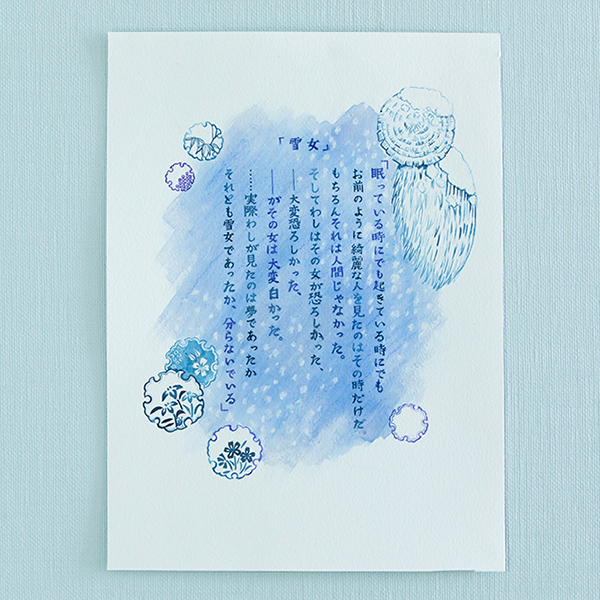 「雪女」
「眠っている時にでも起きている時にでも
お前のように綺麗な人を見たのはその時だけだ。
もちろんそれは人間じゃなかった。
そしてわしはその女が恐ろしかった、
――大変恐ろしかった、
――がその女は大変白かった。
……実際わしが見たのは夢であったか
それとも雪女であったか、分らないでいる」